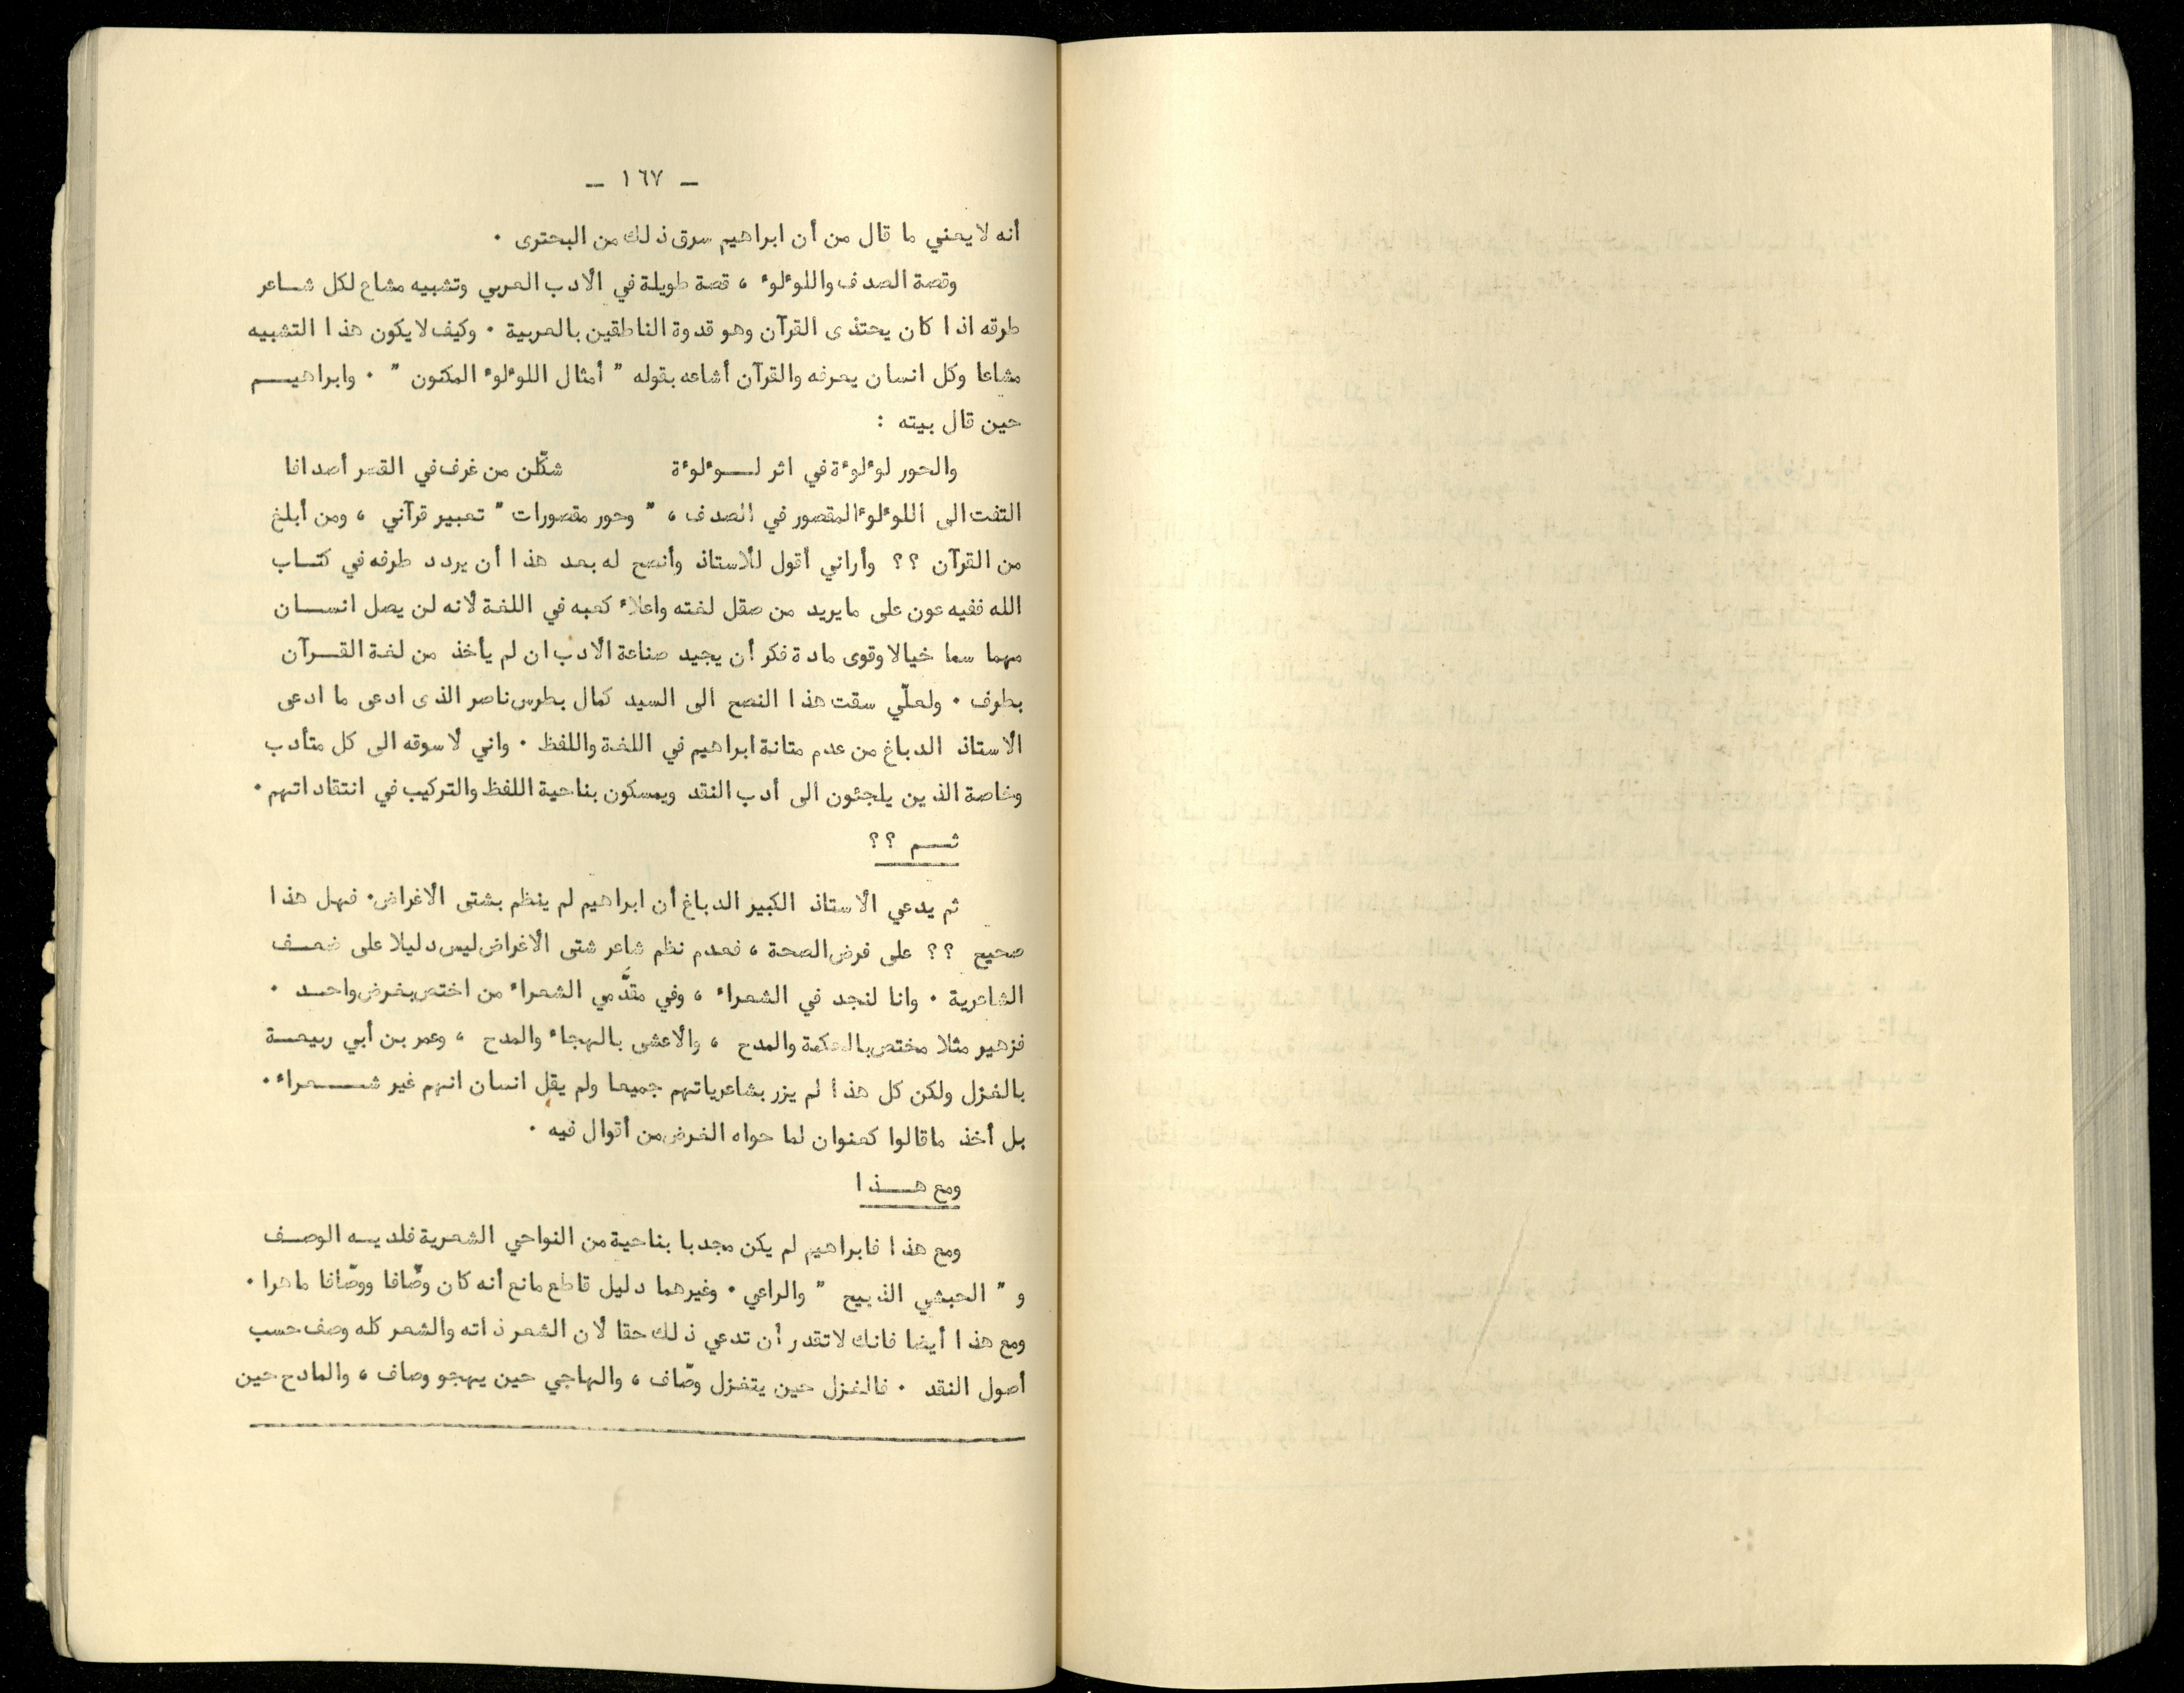 ـ ١٦٧ ـ
أنه لا يعني ما قال من أن ابراهيم سرق ذلك من البحترى ٠
وقصة الصدف واللوءلوء ، قصة طويلة في الأدب العربي وتشبيه مشاع لكل شاعر
طرقه اذا كان يحتذى القرآن وهو قدوة الناطقين بالعربية ٠ وكيف لا يكون هذا التشبيه
مشاعا وكل انسان يعرفه والقرآن أشاعه بقوله " أمثال اللوءلوء المكنون " ٠ وابراهيم
حين قال بيته :
والحور لوءلوءة في اثر لوءلوءة      شكّلن من غرف في القصر أصدافا
التفت الى اللوءلوء المقصور في الصدف ، " وحور مقصورات " تعبير قرآني ، ومن أبلغ
من القرآن ؟؟ وأراني أقول للأستاذ وأنصح له بعد هذا أن يردد طرفه في كتاب
الله ففيه عون على ما يريد من صقل لغته واعلاء كعبه في اللغة لأنه لن يصل انسان
مهما سما خيالا وقوى مادة فكر أن يجيد صناعة الأدب ان لم يأخذ من لغة القرآن
بطرف ٠ ولعلّي سقت هذا النصح الى السيد كمال بطرس ناصر الذى ادعى ما ادعى
الأستاذ الدباغ من عدم متانة ابراهيم في اللغة واللفظ ٠ واني لأسوقه الى كل متأدب
وخاصة الذين يلجئون الى أدب النقد ويمسكون بناحية اللفظ والتركيب في انتقاداتهم ٠
ثم ؟؟
ثم يدعي الأستاذ الكبير الدباغ أن ابراهيم لم ينظم بشتى الأغراض ٠ فهل هذا
صحيح ؟؟ على فرض الصحة ، فعدم نظم شاعر شتى الأغراض ليس دليلا على ضعف
الشاعرية ٠ وانا لنجد في الشعراء ، وفي مقدَّمي الشعراء من اختص بغرض واحد ٠
فزهير مثلا مختص بالحكمة والمدح ، والأعشى بالهجاء والمدح ، وعمر بن أبي ربيعة
بالغزل ولكن كل هذا لم يزر بشاعرياتهم جميعا ولم يقل انسان انهم غير شعراء ٠
بل أخذ ما قالوا كعنوان لما حواه الغرض من أقوال فيه ٠
ومع هذا
ومع هذا فابراهيم لم يكن مجدبا بناحية من النواحي الشعرية فلديه الوصف
و " الحبشي الذبيح " والراعي ٠ وغيرهما دليل قاطع مانع أنه كان وصّافا ووصّافا ماهرا ٠
ومع هذا أيضا فانك لا تقدر أن تدعي ذلك حقا لأن الشعر ذاته والشعر كله وصف حسب
أصول النقد ٠ فالغزل حين يتغزل وصّاف ، والهاجي حين يهجو وصاف ، والمادح حين